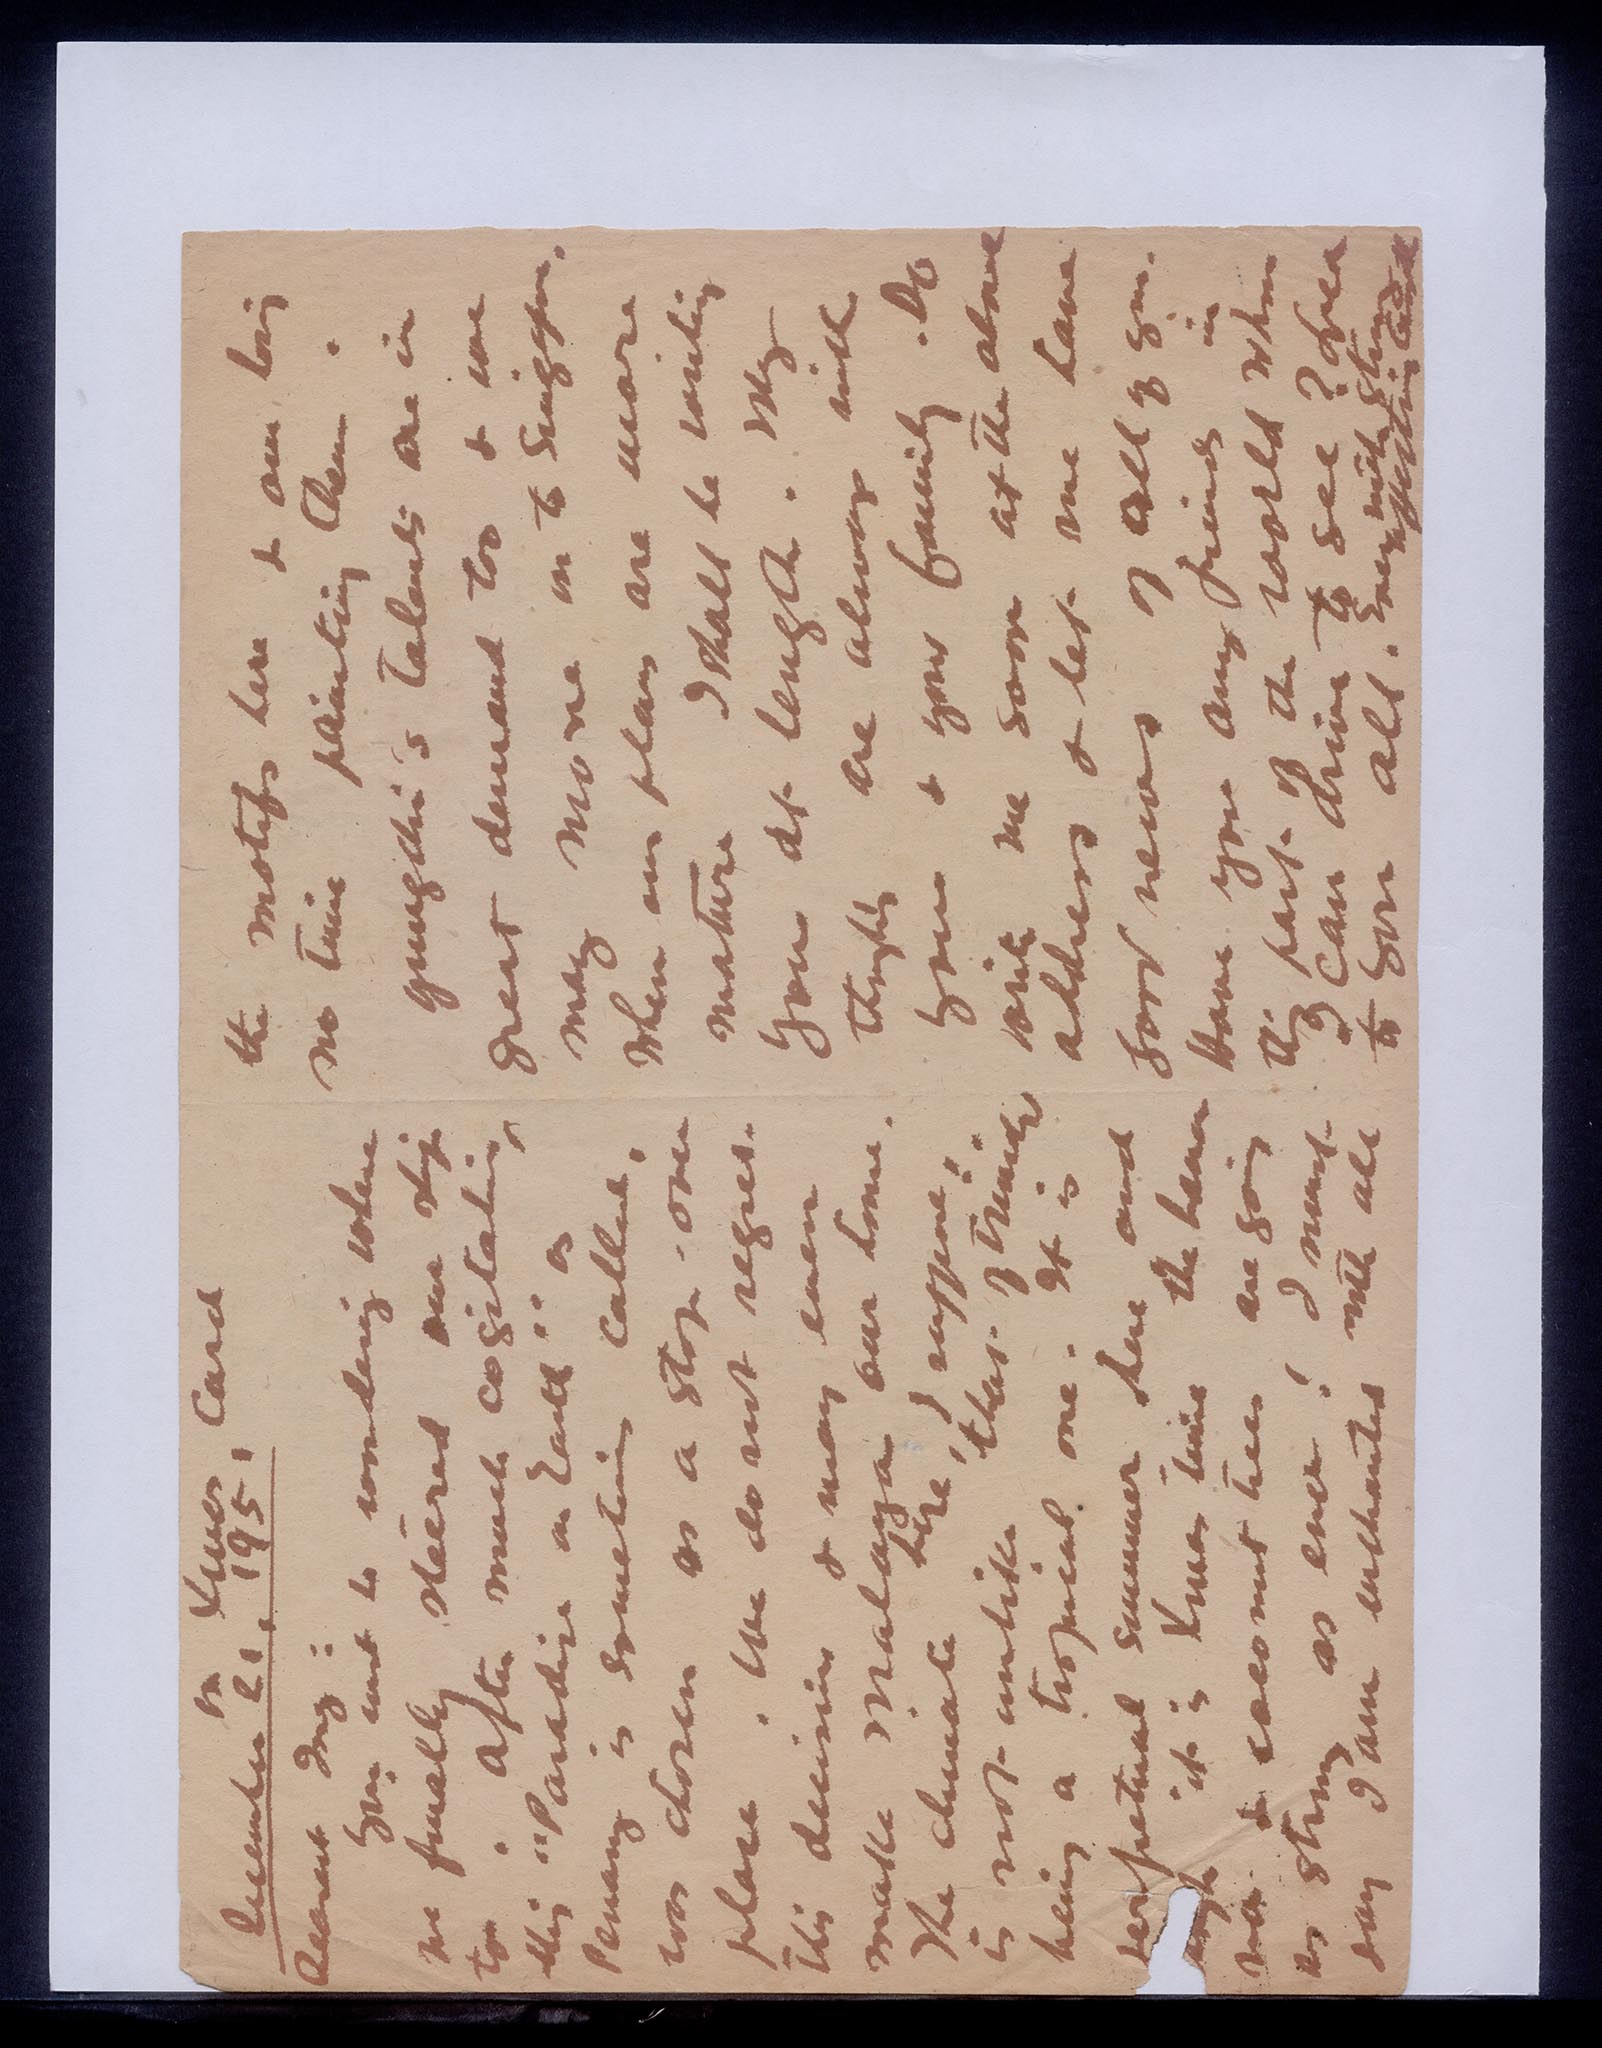 on Xmas Card
December 21, 1951
Dearest Ing:
You must be wondering where
we finally steered our ship
to. After much cogitating,
this "Paradise on Earth" as
Penang is sometimes called,
was chosen as a stop-over
place. We do not regret
this decision & may even
make Malaya our home.
The climate here, I suppose,
is not unlike that of Trinidad
being a tropical one. It is
perpetual summer here and
it is Xmas time the heat
& coconut trees are going
as strong as ever! I must
say I am enchanted with all
the motifs here & am losing
no time painting them.
Yungchi's talents are in
great demand too & we
may move on to Singapore.
When our plans are more
mature I shall be writing
you at length. My
thoughts are always with
you & your family. Do
write me soon at the above
address & let me have
good news of all of you.
Have you any friends in
this part of the world whom
I can drive to see? Love
to you all. Ever